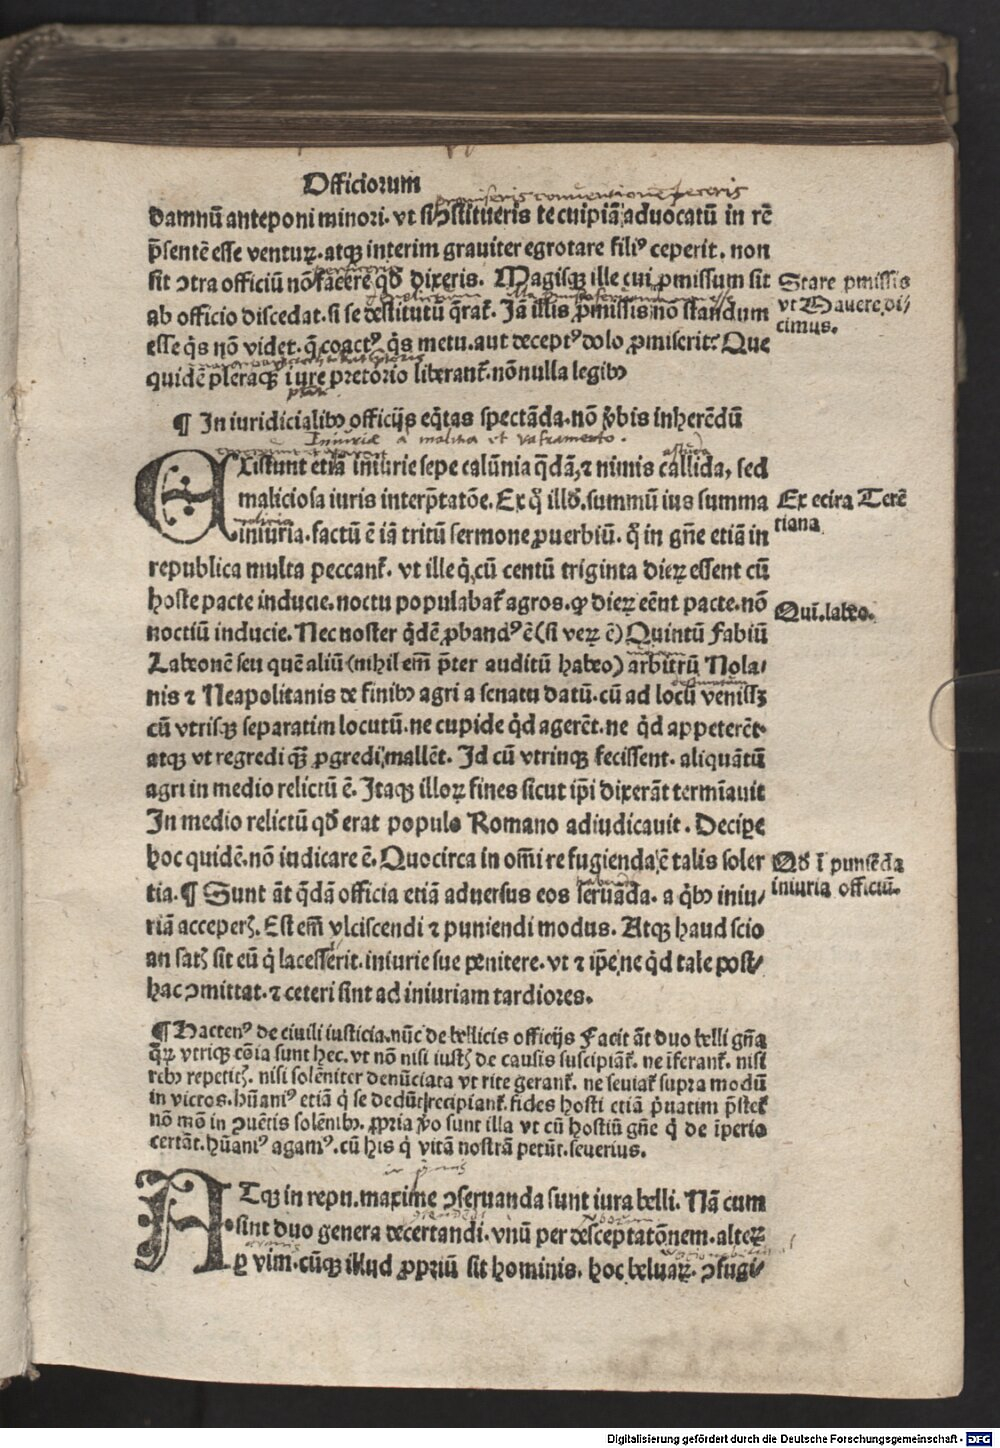 Officiorum
damnū anteponi minori. vt si ↄstitueris te cuipiā aduocatū in rē
p̄sentē esse venturꝝ. atqꝫ interim grauiter egrotare filiꝰ ceperit. non
sit ↄtra officiū nō facere qd̓ dixeris. Magisqꝫ ille cui ꝓmissum sit
ab officio discedat. si se destitutū q̄rat̉. Jā illis ꝓmissis nō standum
esse q̇s nō videt. q̄ coactꝰ q̇s metu. aut deceptꝰ dolo ꝓmiserit: Que
quidē pleraqꝫ iure pretorio liberant̉. nōnulla legibꝰ
Stare pmissis
vt Dauere di/
cimus.
¶ In iuridicialibꝰ officijs eq̇tas spectāda. nō v̓bis inherēdū
Iniuriæ a malitia et vaframento.
EXistunt etiā iniurie sepe calūnia q̄dā, ⁊ nimis callida, sed
maliciosa iuris interp̄tatōe. Ex q̊ illd̓. summū ius summa
iniuria. factū ē iā tritū sermone ꝓuerbiū. q̊ in gn̄e etiā in
republica multa peccant̉. vt ille q̇ cū centū triginta dierꝝ essent cū
hoste pacte inducie. noctu populabat̉ agros. ꝙ dierꝝ eēnt pacte. nō
noctiū inducie. Nec noster q̇dē ꝓbandꝰ ē (si verꝝ ē) Quintū Fabiū
Labeonē seu quē aliū (nihil em̄ p̄ter auditū habeo) arbitrū Nola/
nis ⁊ Neapolitanis de finibꝰ agri a senatu datū. cū ad locū venissꝫ
cū vtrisqꝫ separatim locutū. ne cupide q̇d agerēt. ne q̇d appeterēt.
atqꝫ vt regredi q̄ꝫ ꝓgredi mallēt. Id cū vtrinqꝫ fecissent. aliquātū
agri in medio relictū ē. Itaqꝫ illorꝝ fines sicut ip̄i dixerāt termīauit
In medio relictū qd̓ erat populo Romano adiudicauit. Decipe
hoc quidē. nō iudicare ē. Quocirca in om̄i re fugienda ē talis soler
tia. ¶ Sunt āt q̄dā officia etiā aduersus eos seruāda. a q̇bꝰ iniu/
riā acceperꝭ. Est em̄ vlciscendi ⁊ puniendi modus. Atqꝫ haud scio
an satꝭ sit eū q̇ lacesserit. iniurie sue penitere. vt ⁊ ip̄e ne q̇d tale post/
hac ↄmittat. ⁊ ceteri sint ad iniuriam tardiores.
Ex ecira Terē
tiana
Qui. labeo.
Qd̓ ī puniēda
iniuria officiū.
¶ Hactenꝰ de ciuili iusticia. nūc de bellicis officijs Facit āt duo belli gn̄a
q̄rꝝ vtriqꝫ cōia sunt hec. vt nō nisi iustꝭ de causis suscipiāt̉. ne īferant̉. nisi
rebꝰ repetitꝭ. nisi solēniter denūciata vt rite gerant̉. ne seuiat̉ supra modū
in victos. hūaniꝰ etiā q̇ se dedūt recipiant̉. fides hosti etiā p̓uatim p̄stet̉
nō mō in ↄuētis solēnibꝰ. ꝓpria v̓o sunt illa vt cū hostiū gn̄e q̇ de īperio
certāt. hūaniꝰ agamꝰ. cū his q̇ vitā nostrā petūt. seuerius.
ATqꝫ in repu. maxime ↄseruanda sunt iura belli. Nā cum
sint duo genera decertandi. vnū per desceptatōnem. alterꝝ
ꝑ vim. cūqꝫ illud ꝓpriū sit hominis. hoc beluarꝝ. ↄfugi/
Digitalisierung gefördert durch die Deutsche Forschungsgemeinschaft - DFG